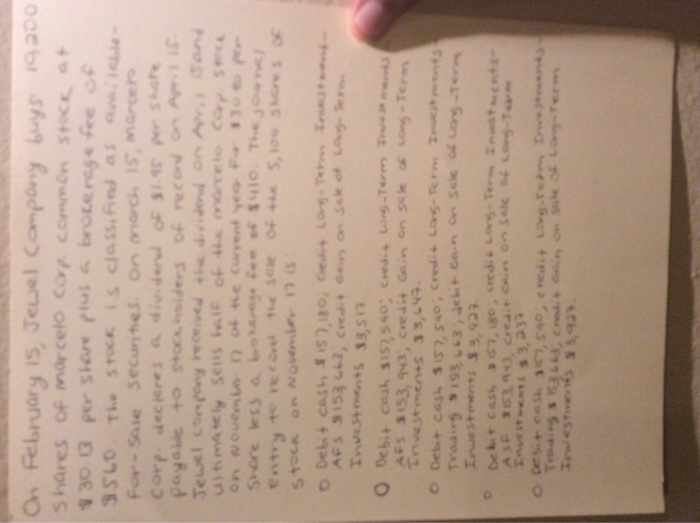 On February 15, Jewel Company buys 19,200
shares of Marcelo Corp. common stock at
$30.13 per share plus a brokerage fee of
$560. The stock is classified as available-
for-sale securities. On march 15, marcelo
Corp. declares a dividend of $1.95 per share
payable to stockholders of record on April 15.
Jewel company received the dividend on April 15 and
ultimately sells half of the marcelo Corp. stock
on November 17 of the current year for $30.90 per
share less a brokerage fee of $410. The journal
entry to record the sale of the 5,100 shares of
stock on November 17 is:
Debit cash $157,180; Credit Long-Term Investment-
AFS $153,663; credit Gain on sale of Long-Term
Investments $3,517.
Debit cash $157,590; credit Long-Term Investments-
AFS $153,943; credit Gain on sale of Long-Term
Investments $3,647.
Debit cash $157,590; credit Long-Term Investments-
Trading $153,663; debit Gain on sale of Long-Term
Investments $3,927.
Debit cash $157,180; credit Long-Term Investments-
ASF $153,943; credit Gain on Sale of Long-Term
Investments $3,237
Debit cash $157,590; credit Long-Term Investments-
Trading $153,663; credit Gain on sale of Long-Term
Investments $3,927.